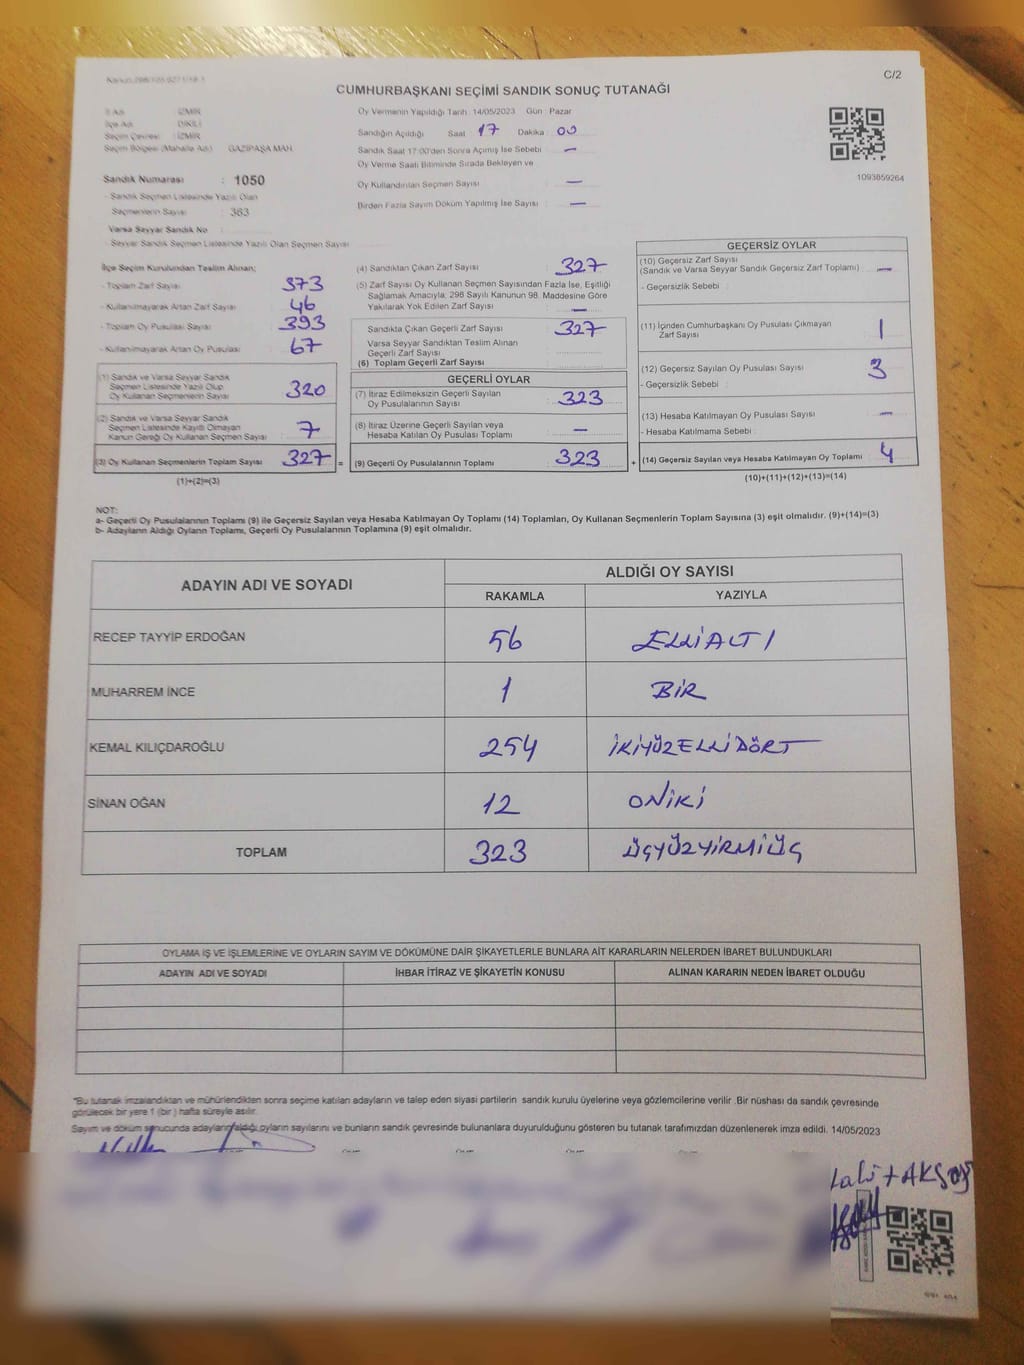 Kanun:298/105:6271/18-1
C/2
CUMHURBAŞKANI SEÇİMİ SANDIK SONUÇ TUTANAĞI
İl Adı : İZMİR
İlçe Adı : DİKİLİ
Seçim Çevresi : İZMİR
Seçim Bölgesi (Mahalle Adı) : GAZİPAŞA MAH.
Sandık Numarası : 1050
- Sandık Seçmen Listesinde Yazılı Olan
Seçmenlerin Sayısı : 363
Varsa Seyyar Sandık No :
- Seyyar Sandık Seçmen Listesinde Yazılı Olan Seçmen Sayısı :
Oy Vermenin Yapıldığı Tarih : 14/05/2023 Gün : Pazar
Sandığın Açıldığı Saat : 17 Dakika : 00
Sandık Saat 17:00'den Sonra Açımış İse Sebebi : —
Oy Verme Saati Bitiminde Sırada Bekleyen ve
Oy Kullandırılan Seçmen Sayısı : —
Birden Fazla Sayım Döküm Yapılmış İse Sayısı : —
1093859264
İlçe Seçim Kurulundan Teslim Alınan;
- Toplam Zarf Sayısı : 373
- Kullanılmayarak Artan Zarf Sayısı : 46
- Toplam Oy Pusulası Sayısı : 393
- Kullanılmayarak Artan Oy Pusulası : 67
(1) Sandık ve Varsa Seyyar Sandık
Seçmen Listesinde Yazılı Olup
Oy Kullanan Seçmenlerin Sayısı : 320
(2) Sandık ve Varsa Seyyar Sandık
Seçmen Listesinde Kayıtlı Olmayan
Kanun Gereği Oy Kullanan Seçmen Sayısı : 7
(3) Oy Kullanan Seçmenlerin Toplam Sayısı : 327 =
(1)+(2)=(3)
(4) Sandıktan Çıkan Zarf Sayısı : 327
(5) Zarf Sayısı Oy Kullanan Seçmen Sayısından Fazla İse, Eşitliği
Sağlamak Amacıyla; 298 Sayılı Kanunun 98. Maddesine Göre
Yakılarak Yok Edilen Zarf Sayısı : —
Sandıkta Çıkan Geçerli Zarf Sayısı : 327
Varsa Seyyar Sandıktan Teslim Alınan
Geçerli Zarf Sayısı :
(6) Toplam Geçerli Zarf Sayısı :
GEÇERLİ OYLAR
(7) İtiraz Edilmeksizin Geçerli Sayılan
Oy Pusulalarının Sayısı : 323
(8) İtiraz Üzerine Geçerli Sayılan veya
Hesaba Katılan Oy Pusulası Toplamı : —
(9) Geçerli Oy Pusulalarının Toplamı : 323 +
GEÇERSİZ OYLAR
(10) Geçersiz Zarf Sayısı
(Sandık ve Varsa Seyyar Sandık Geçersiz Zarf Toplamı) : —
- Geçersizlik Sebebi :
(11) İçinden Cumhurbaşkanı Oy Pusulası Çıkmayan
Zarf Sayısı : 1
(12) Geçersiz Sayılan Oy Pusulası Sayısı : 3
- Geçersizlik Sebebi :
(13) Hesaba Katılmayan Oy Pusulası Sayısı : —
- Hesaba Katılmama Sebebi :
(14) Geçersiz Sayılan veya Hesaba Katılmayan Oy Toplamı : 4
(10)+(11)+(12)+(13)=(14)
NOT:
a- Geçerli Oy Pusulalarının Toplamı (9) ile Geçersiz Sayılan veya Hesaba Katılmayan Oy Toplamı (14) Toplamları, Oy Kullanan Seçmenlerin Toplam Sayısına (3) eşit olmalıdır. (9)+(14)=(3)
b- Adayların Aldığı Oyların Toplamı, Geçerli Oy Pusulalarının Toplamına (9) eşit olmalıdır.
ADAYIN ADI VE SOYADI
ALDIĞI OY SAYISI
RAKAMLA YAZIYLA
RECEP TAYYİP ERDOĞAN 56 ELLİALTI
MUHARREM İNCE 1 BİR
KEMAL KILIÇDAROĞLU 254 İKİYÜZELLİDÖRT
SİNAN OĞAN 12 ONİKİ
TOPLAM 323 ÜÇYÜZYİRMİÜÇ
OYLAMA İŞ VE İŞLEMLERİNE VE OYLARIN SAYIM VE DÖKÜMÜNE DAİR ŞİKAYETLERLE BUNLARA AİT KARARLARIN NELERDEN İBARET BULUNDUKLARI
ADAYIN ADI VE SOYADI İHBAR İTİRAZ VE ŞİKAYETİN KONUSU ALINAN KARARIN NEDEN İBARET OLDUĞU
"Bu tutanak imzalandıktan ve mühürlendikten sonra seçime katılan adayların ve talep eden siyasi partilerin sandık kurulu üyelerine veya gözlemcilerine verilir .Bir nüshası da sandık çevresinde
görülecek bir yere 1 (bir ) hafta süreyle asılır.
Sayım ve döküm sonucunda adayların aldığı oyların sayılarını ve bunların sandık çevresinde bulunanlara duyurulduğunu gösteren bu tutanak tarafımızdan düzenlenerek imza edildi. 14/05/2023